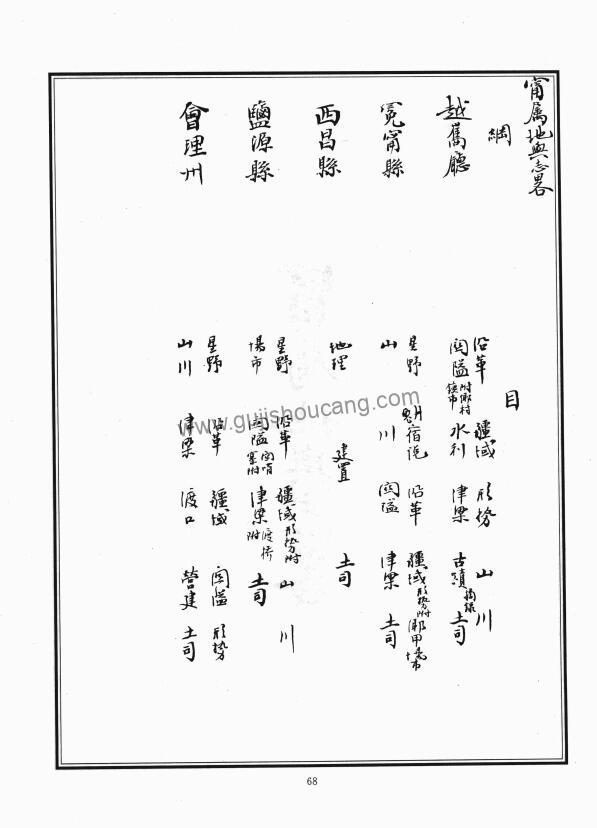 甯属地輿志畧
綱
越嶲廳
冕甯縣
西昌縣
鹽源縣
會理州
目
沿革 疆域 形勢 山川
関隘 附鄉村鎮市 水利 津梁 古蹟 摘錄 土司
星野 觜宿說 沿革 疆域 形勢附 鄉甲場市
山川 関隘 津梁 土司
地理 建置 土司
星野 沿革 疆域 形勢附 山川
場市 関隘 関哨寨附 津梁 渡橋附 土司
星野 沿革 疆域 関隘 形勢
山川 津梁 渡口 營建 土司
www.gujishoucang.com
68